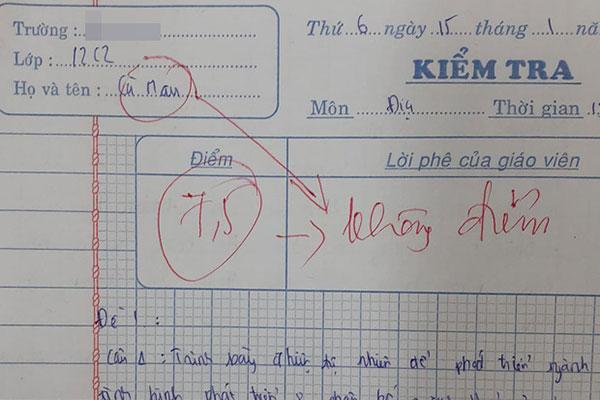 Trường :
Lớp : 12C2
Họ và tên : Cù Mán
Thứ 6 ngày 15 tháng 1 nă
KIỂM TRA
Môn Địa Thời gian
Điểm
Lời phê của giáo viên
7,5 → không điểm
Đề 1 :
Câu 1 : Trình bày điều kiện nhiên để phát triển ngành
tình hình phát triển